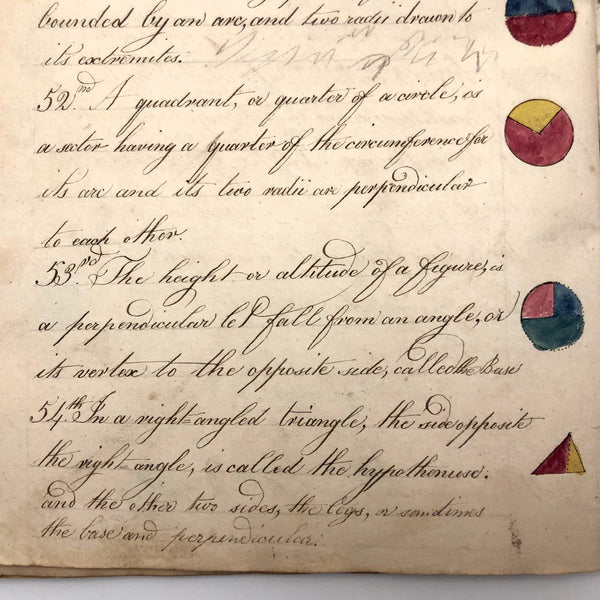 bounded by an arc, and two radii drawn to
its extremites.
52nd A quadrant, or quarter of a circle, is
a sector having a quarter of the circumference for
its arc and its two radii are perpendicular
to each other.
53rd The height or altitude of a figure, is
a perpendicular let fall from an angle, or
its vertex to the opposite side, called the Base
54th In a right-angled triangle, the side opposite
the right-angle, is called the hypothenuse.
and the other two sides, the legs, or somtimes
the base and perpendicular.